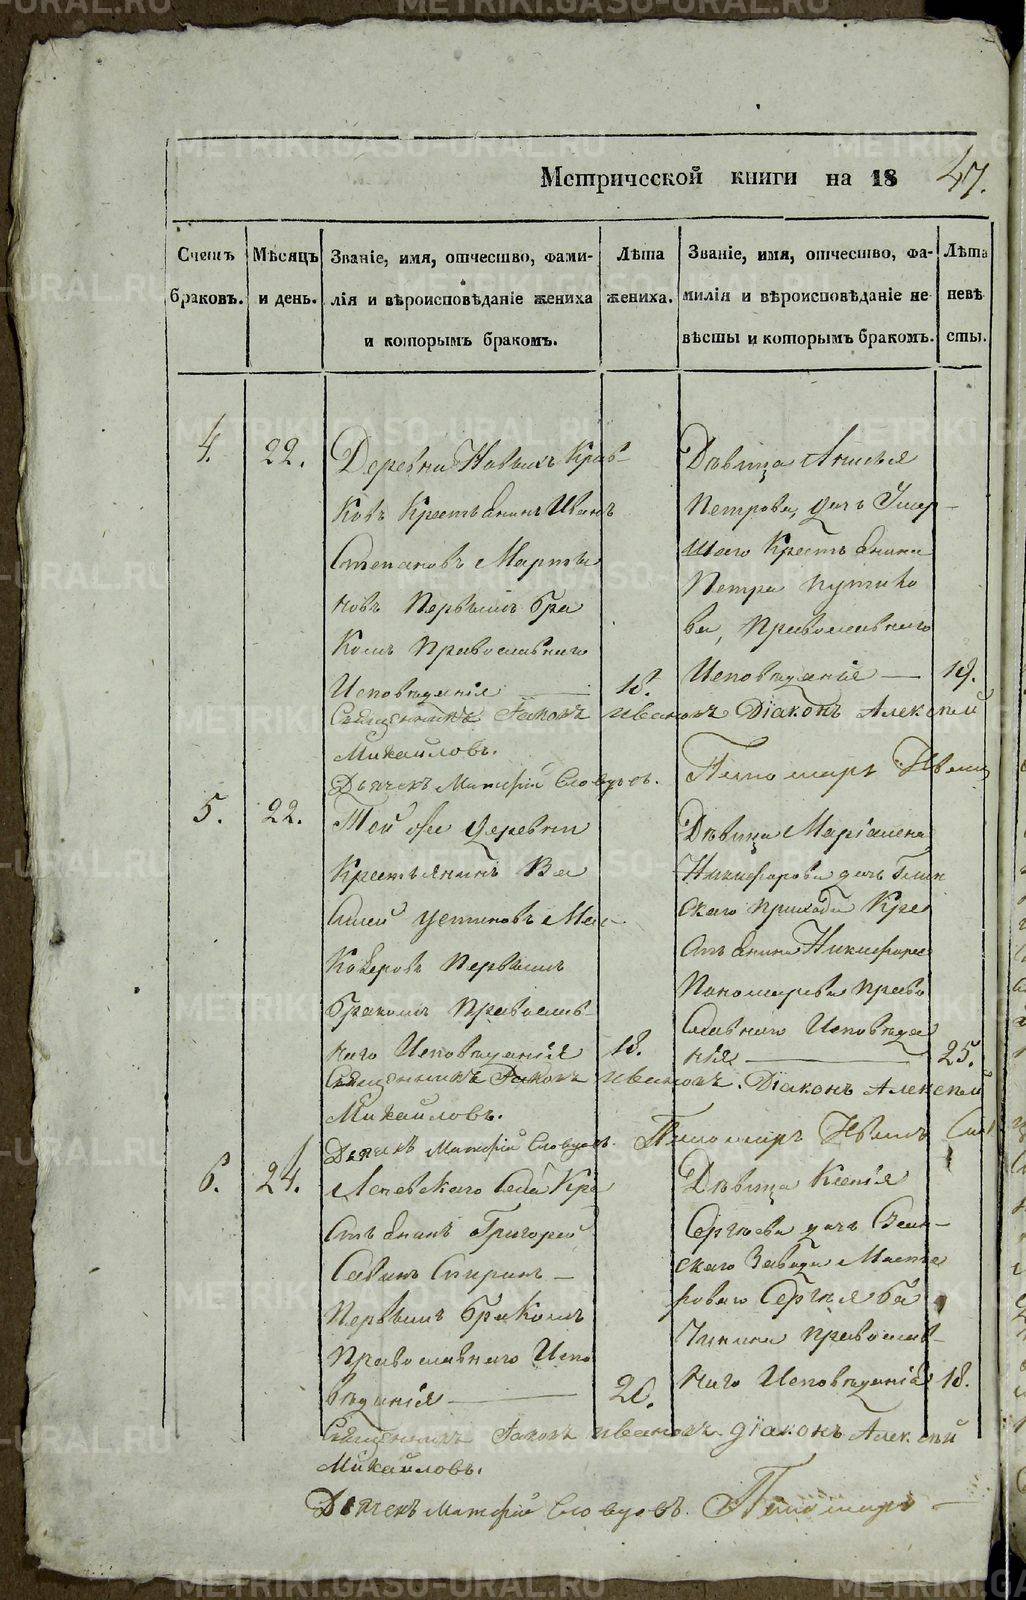 Метрической книги на 1847.
Счетъ браковъ.
Мѣсяцъ и день.
Званіе, имя, отчество, фами-
лія и вѣроисповѣданіе жениха
и которымъ бракомъ.
Лѣта
жениха.
Званіе, имя, отчество, фа-
милія и вѣроисповѣданіе не
вѣсты и которымъ бракомъ.
Лѣта
невѣ
сты.
4.
22.
Деревни Новыхъ
Ковъ Крестьянинъ Иванъ
Степановъ Марты
новъ Первымъ бра
комъ Православнаго
Исповѣданія
18.
Дѣвица Анисья
Петрова, дочь Умер-
шаго Крестьянина
Петра Путило
ва, Православнаго
Исповѣданія
Священникъ Іаковъ Ивановъ Діаконъ Алексѣй
Михайловъ.
Дьячекъ Матфій Словцовъ.
Пономарь
5.
22.
Той же деревни
Крестьянинъ Ва
силей Устиновъ
Первымъ
бракомъ Православ-
наго Исповѣданія
18.
Дѣвица
Никифорова дочь
скаго прихода Кре
стьянина Никифора
Пономарева право
славнаго Исповѣда
нія
25.
Священникъ Іаковъ Ивановъ. Діаконъ Алексѣй
Михайловъ.
Дьячекъ Матфій Словцовъ.
Пономарь
6.
24.
Села Кре
стьянинъ Григорей
Савинъ Спиринъ
Первымъ бракомъ
Православнаго Испо
вѣданія
20.
Дѣвица Ксенія
Сергѣева дочь
скаго Завода Масте
роваго Сергѣя
православ-
наго Исповѣданія
18.
Священникъ Іаковъ Ивановъ діаконъ Алексѣй
Михайловъ.
Дьячекъ Матфій Словцовъ.
Пономарь
METRIKI.GASO-URAL.RU